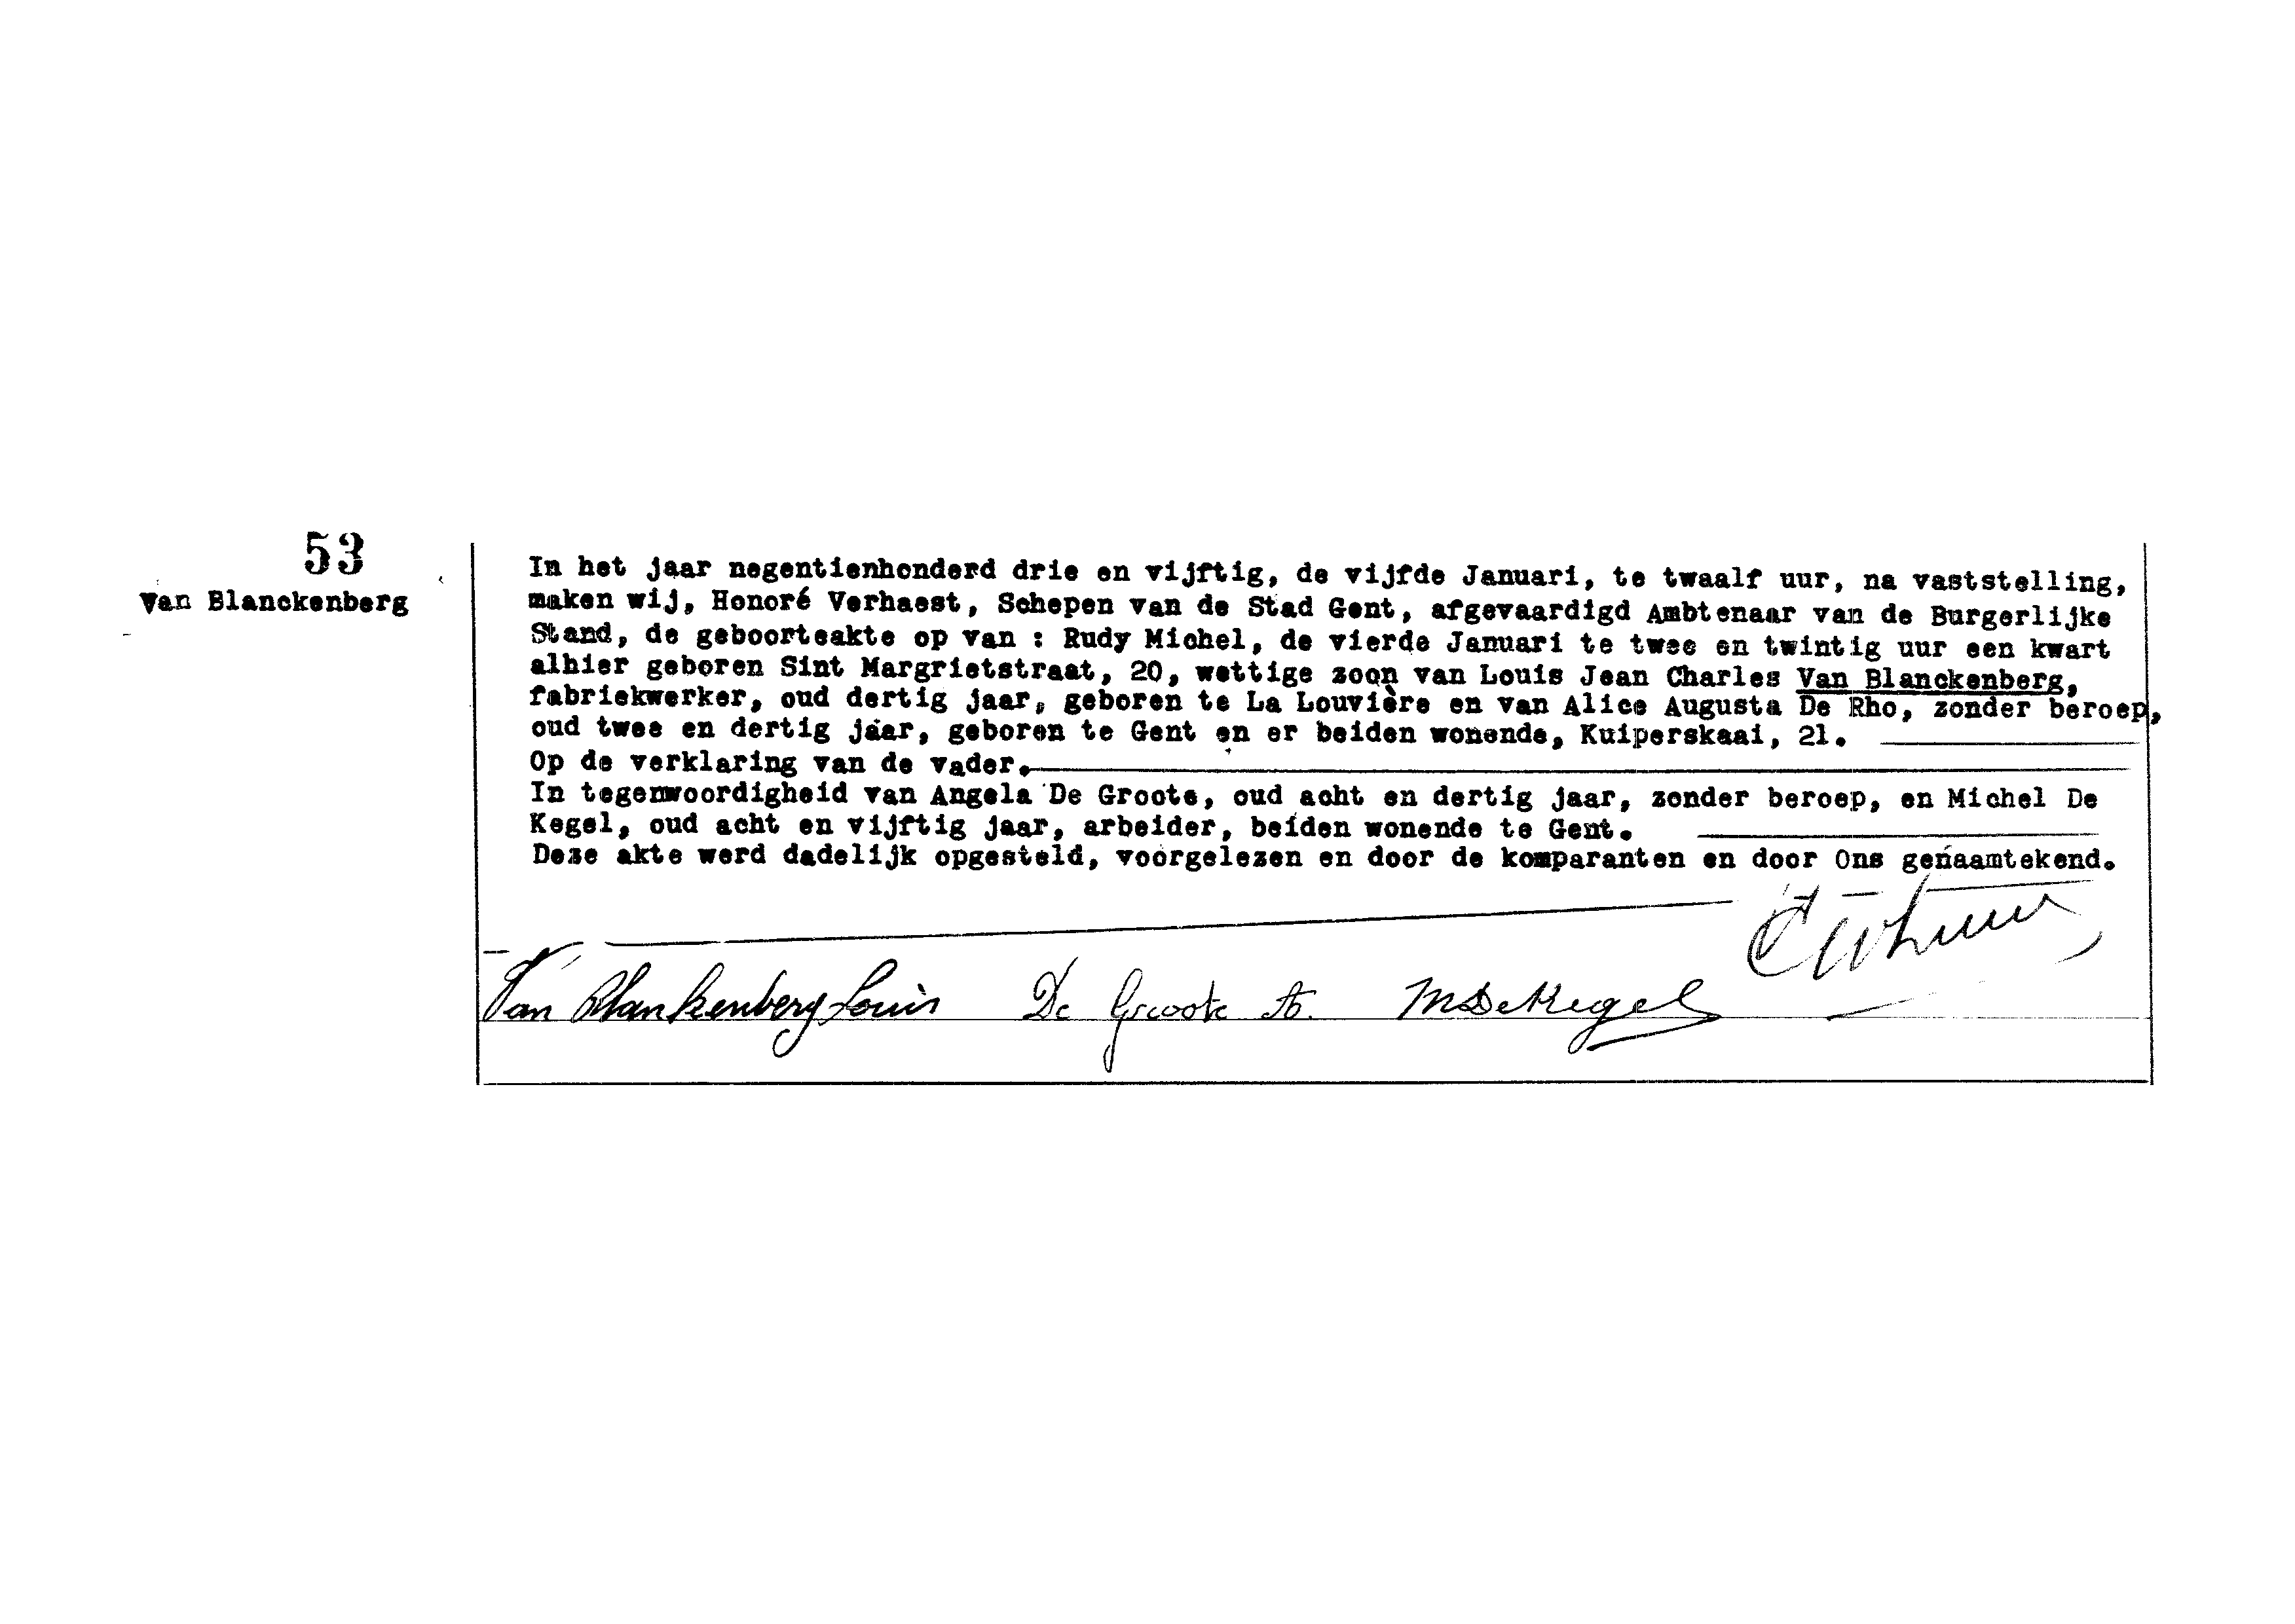 53
Van Blanckenberg
In het jaar negentienhonderd drie en vijftig, de vijfde Januari, te twaalf uur, na vaststelling,
maken wij, Honoré Verhaest, Schepen van de Stad Gent, afgevaardigd Ambtenaar van de Burgerlijke
Stand, de geboorteakte op van : Rudy Michel, de vierde Januari te twee en twintig uur een kwart
alhier geboren Sint Margrietstraat, 20, wettige zoon van Louis Jean Charles Van Blanckenberg,
fabriekwerker, oud dertig jaar, geboren te La Louvière en van Alice Augusta De Rho, zonder beroep,
oud twee en dertig jaar, geboren te Gent en er beiden wonende, Kuiperskaai, 21.
Op de verklaring van de vader.
In tegenwoordigheid van Angela De Groote, oud acht en dertig jaar, zonder beroep, en Michel De
Kegel, oud acht en vijftig jaar, arbeider, beiden wonende te Gent.
Deze akte werd dadelijk opgesteld, voorgelezen en door de komparanten en door Ons genaamtekend.
Van Blankenberg Louis De Groote A. M De Kegel